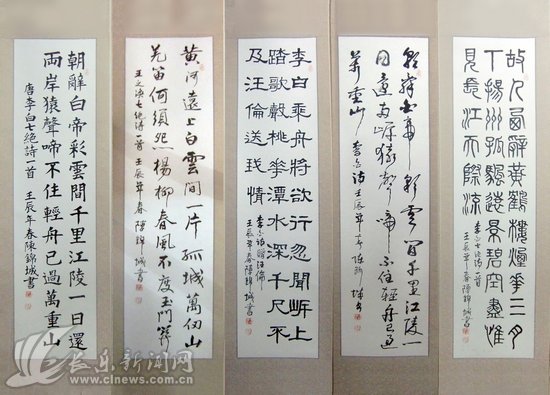 故人西辭黃鶴樓煙華三月
下揚州孤颿遠景碧空盡惟
見長江天際流
李白七絕詩一首
壬辰年春陳錦城書
朝辭白帝彩雲間千里江陵一
日還兩岸猿聲啼不住輕舟已過
萬重山 李白詩 壬辰年春陳錦城書
李白乘舟將欲行忽聞岸上
踏歌聲桃華潭水深千尺不
及汪倫送我情
李白詩贈汪倫
壬辰年春陳錦城書
黃河遠上白雲間一片孤城萬仞山
羌笛何須怨楊柳春風不度玉門關
王之渙七絕詩一首
壬辰年春陳錦城書
朝辭白帝彩雲間千里江陵一日還
兩岸猿聲啼不住輕舟已過萬重山
唐李白七絕詩一首 壬辰年春陳錦城書
长乐新闻网
www.clnews.com.cn